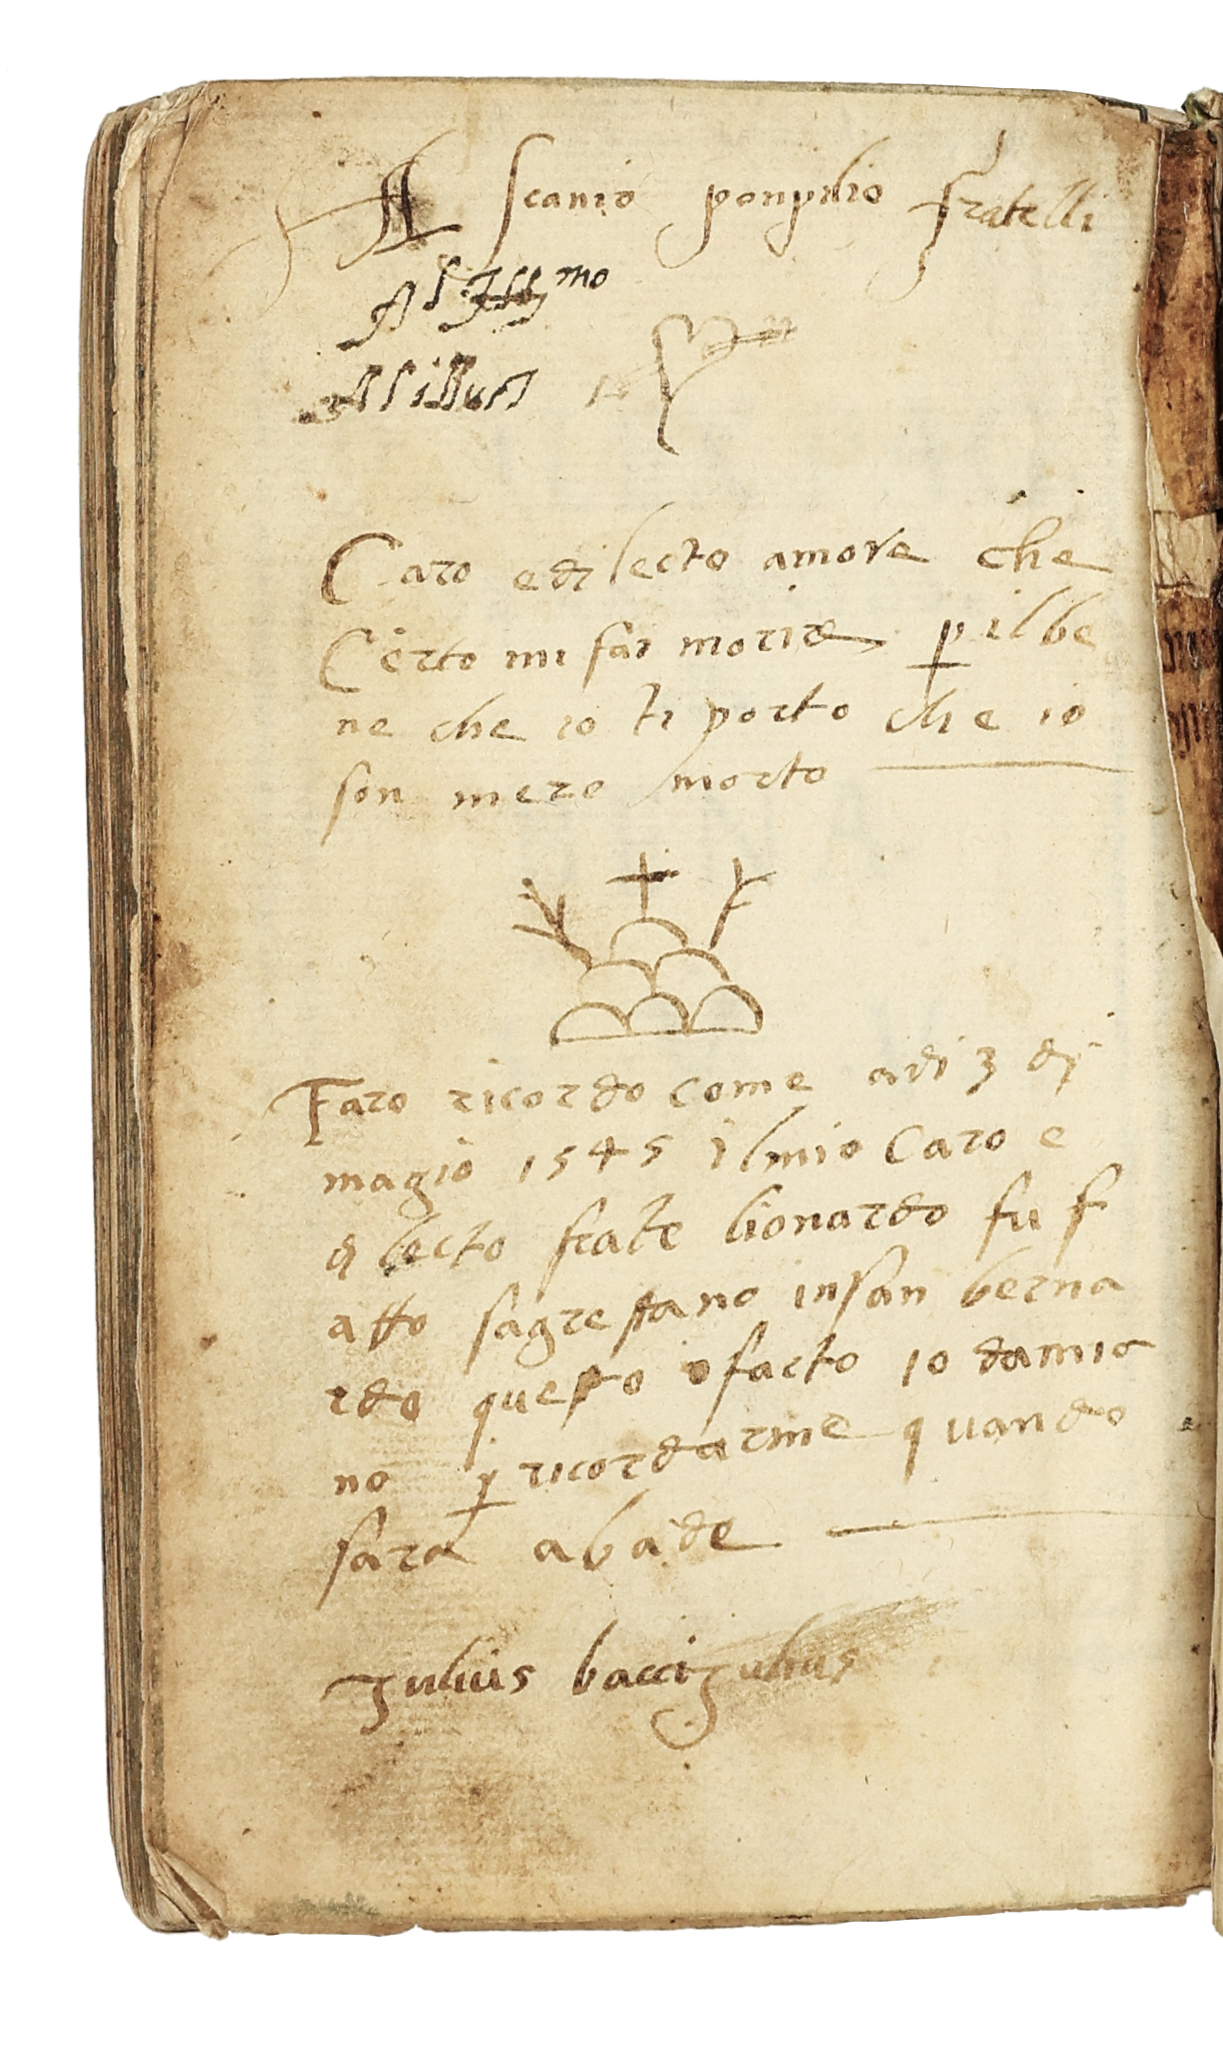 Ascanio ponpilio fratelli
Al Ill mo
Al illus
Caro e dilecto amore che
Certo mi fai morire p il be
ne che io ti porto che io
son mezo morto
Faro ricordo come adi 3 di
magio 1545 il mio Caro e
dilecto frate lionardo fu f
atto sagrestano in san berna
rdo questo o facto io damia
no p ricordarme quando
sara abade
Julius bacci Julius